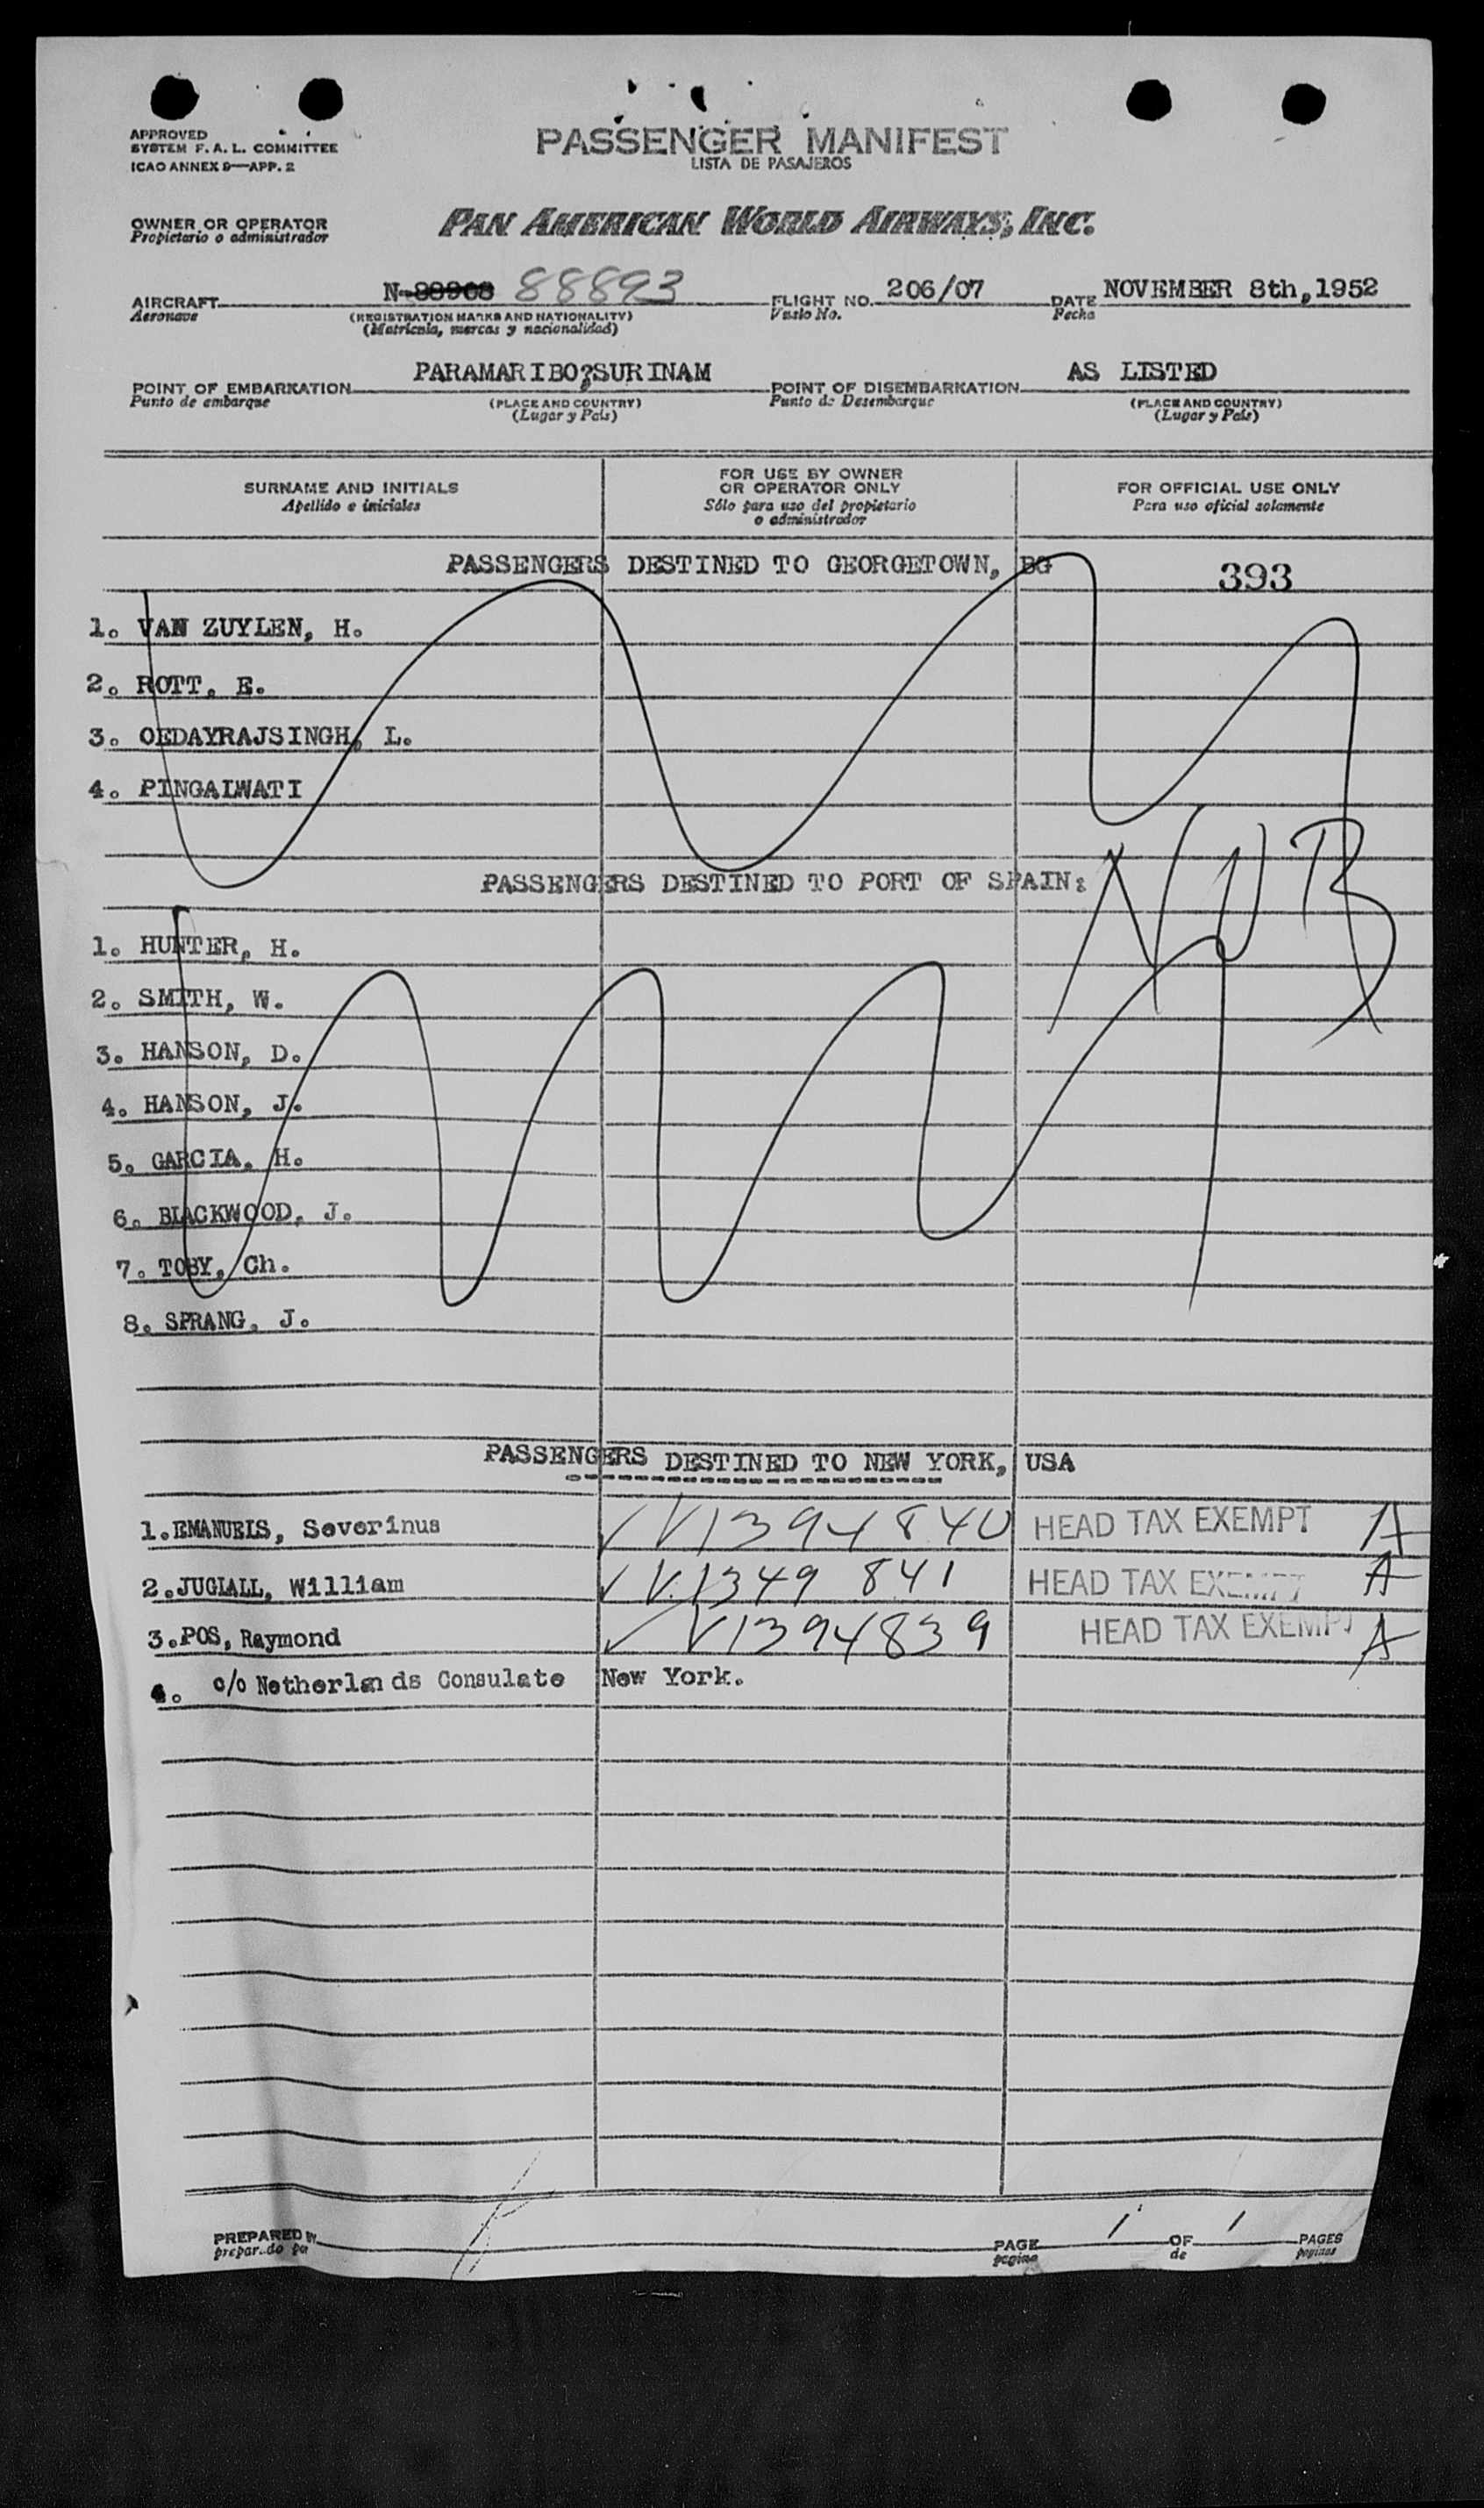 APPROVED
SYSTEM F. A. L. COMMITTEE
ICAO ANNEX 9—APP. 2
PASSENGER MANIFEST
LISTA DE PASAJEROS
OWNER OR OPERATOR
Propietario o administrador
PAN AMERICAN WORLD AIRWAYS, INC.
AIRCRAFT N-88968 88893 FLIGHT NO. 206/07 DATE NOVEMBER 8th,1952
Aeronave (REGISTRATION MARKS AND NATIONALITY) Vuelo No. Fecha
(Matrícula, marcas y nacionalidad)
POINT OF EMBARKATION PARAMARIBO?SURINAM POINT OF DISEMBARKATION AS LISTED
Punto de embarque (PLACE AND COUNTRY) Punto de Desembarque (PLACE AND COUNTRY)
(Lugar y País) (Lugar y País)
SURNAME AND INITIALS FOR USE BY OWNER OR OPERATOR ONLY FOR OFFICIAL USE ONLY
Apellido e iniciales Sólo para uso del propietario o administrador Para uso oficial solamente
PASSENGERS DESTINED TO GEORGETOWN, BG
393
1. VAN ZUYLEN, H.
2. ROTT, E.
3. OEDAYRAJSINGH, L.
4. PINGALWATI
PASSENGERS DESTINED TO PORT OF SPAIN:
1. HUNTER, H.
2. SMITH, W.
3. HANSON, D.
4. HANSON, J.
5. GARCIA, H.
6. BLACKWOOD, J.
7. TOBY, Ch.
8. SPRANG, J.
PASSENGERS DESTINED TO NEW YORK, USA
1.EMANUELS, Severinus V1394840 HEAD TAX EXEMPT A
2.JUGLALL, William V.1349 841 HEAD TAX EXEMPT A
3.POS, Raymond V1394839 HEAD TAX EXEMPT A
4. c/o Netherlands Consulate New York.
PREPARED BY PAGE 1 OF 1 PAGES
preparado por pagina de paginas